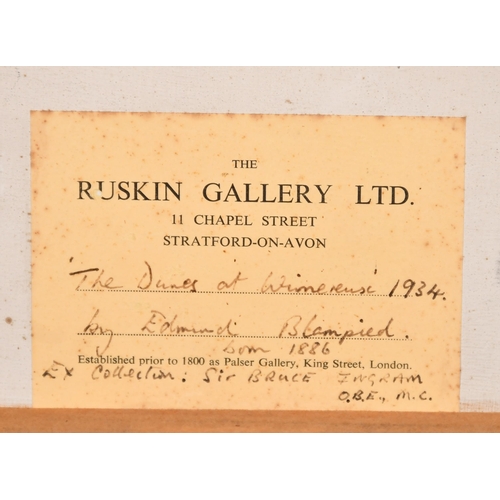 THE
RUSKIN GALLERY LTD.
11 CHAPEL STREET
STRATFORD-ON-AVON
'The Dunes at Wimereux' 1934.
by Edmund Blampied.
born 1886
Established prior to 1800 as Palser Gallery, King Street, London.
Ex Collection: Sir BRUCE INGRAM
O.B.E., M.C.